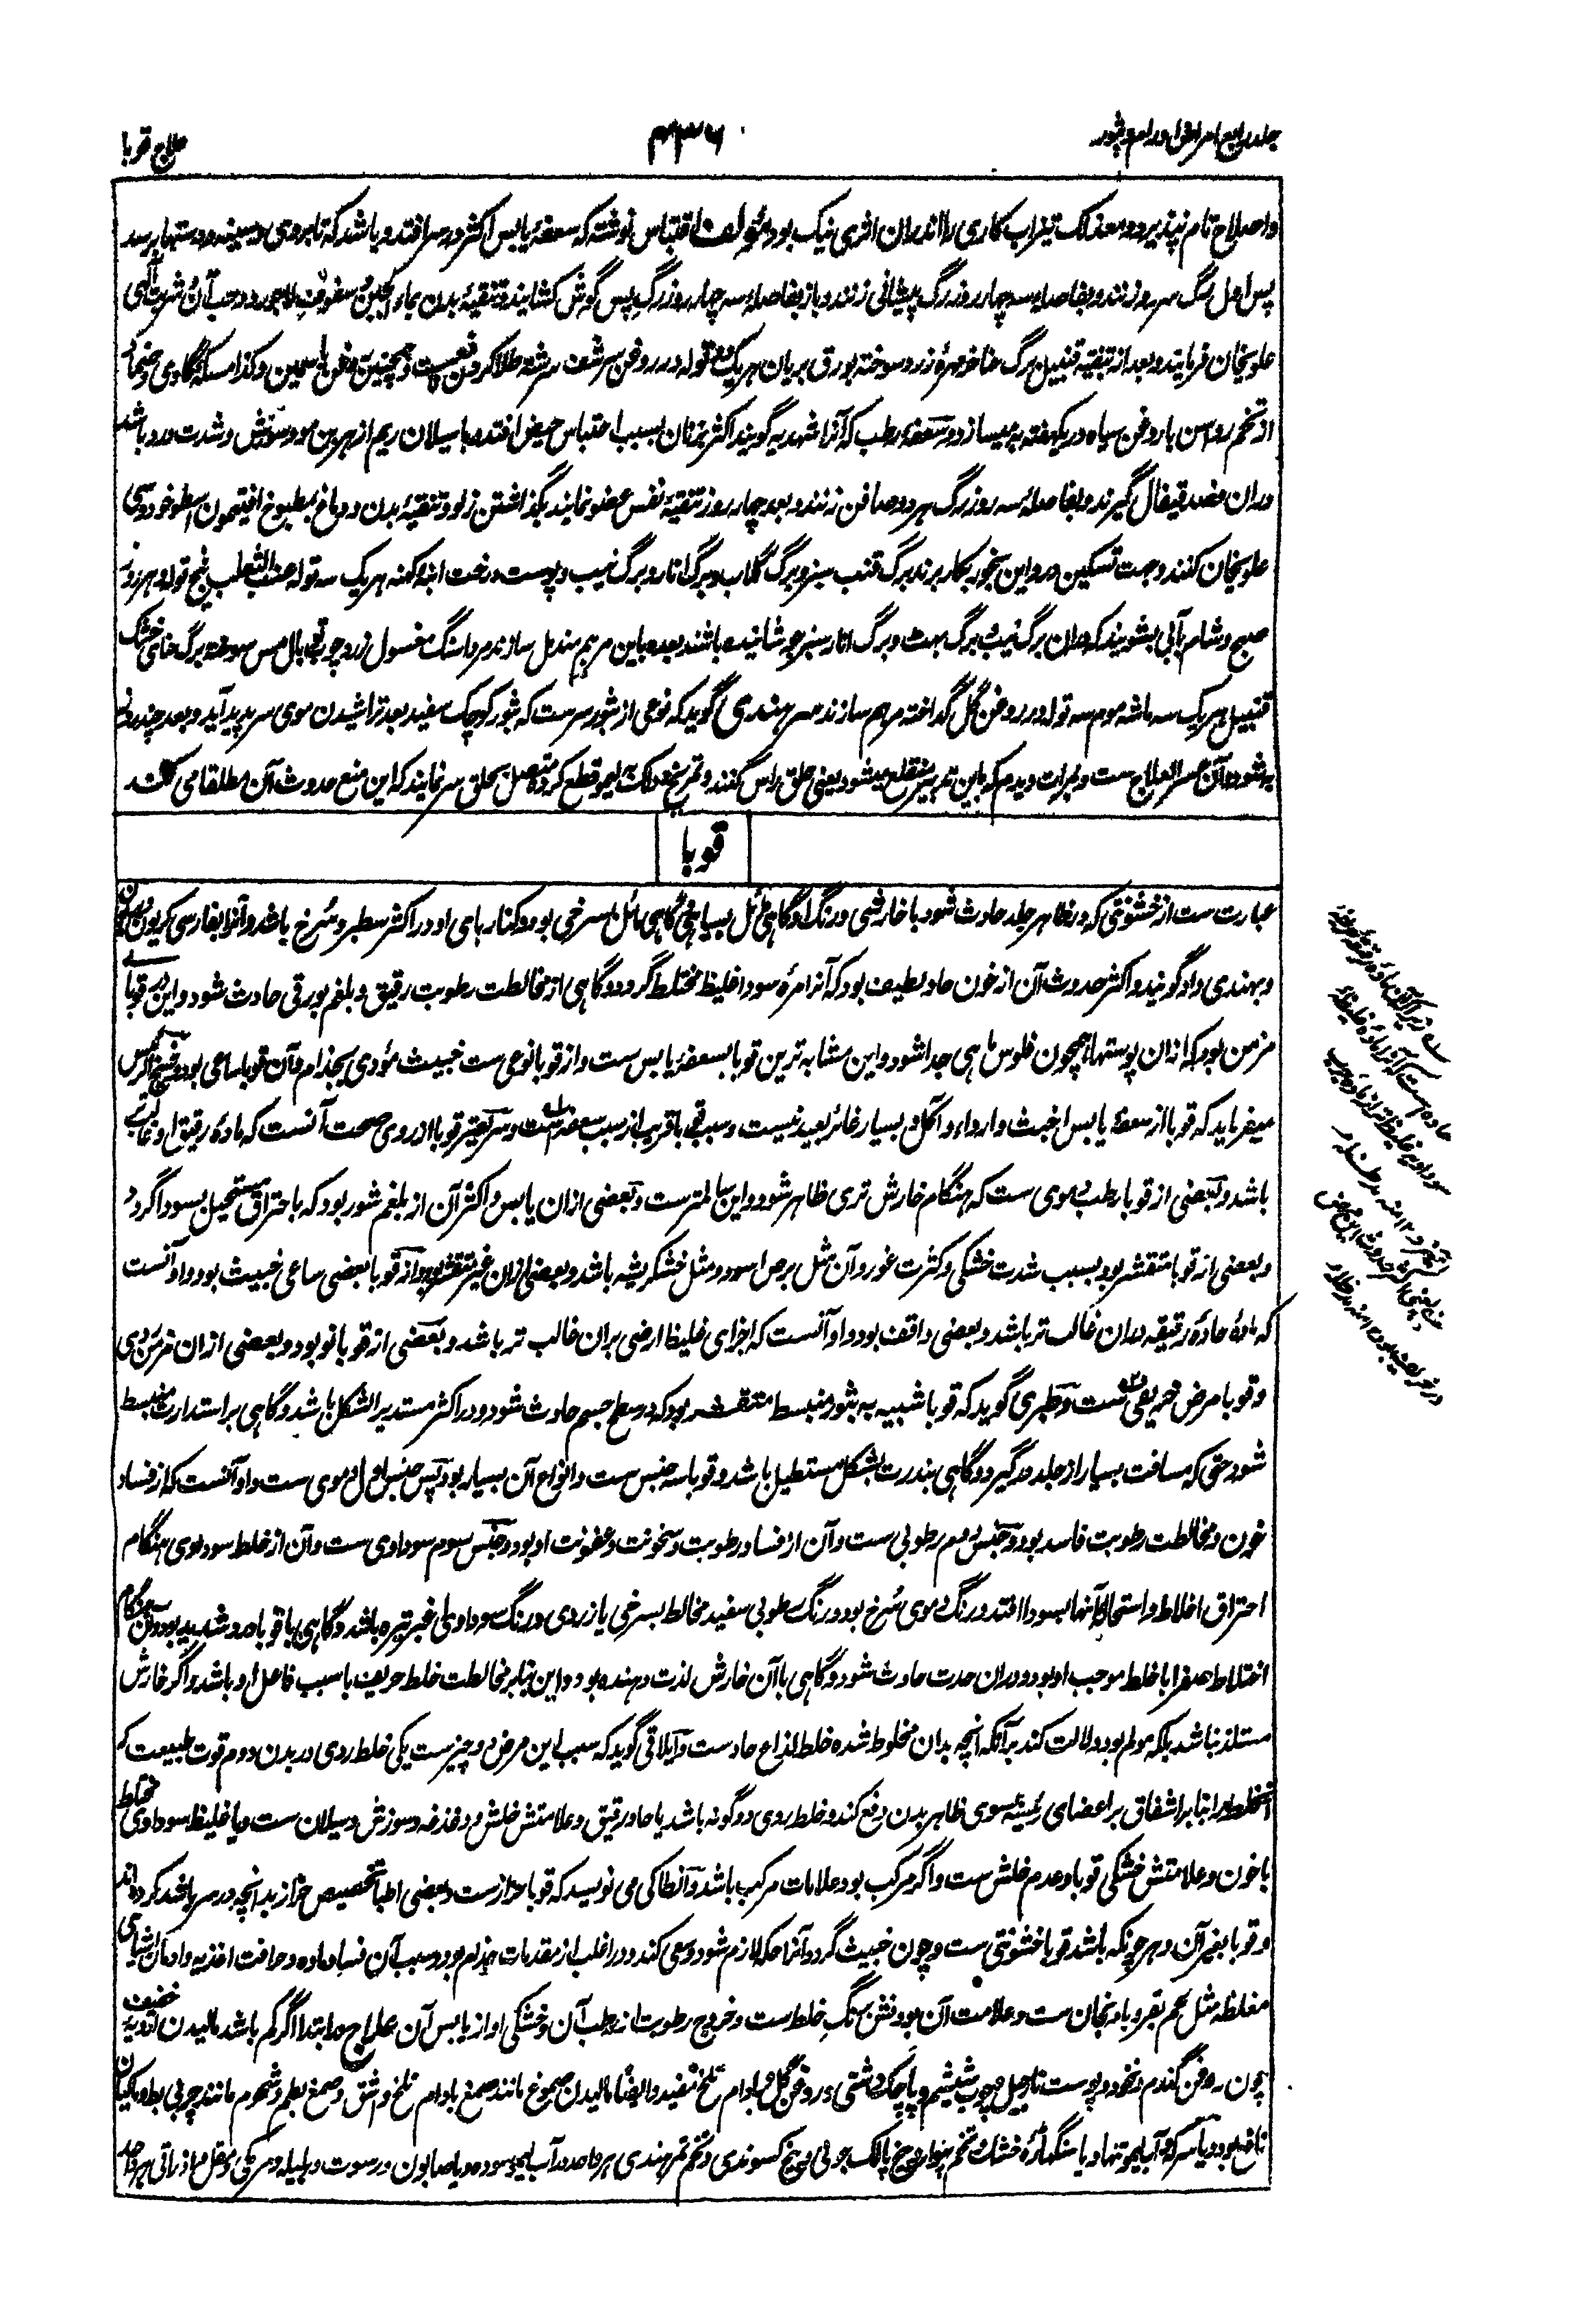 جلد رابع امراض اورام و بثور
۴۳۶
علاج قوبا
واصلاح تام نپذیرد و معذلک تیزاب کاری را اندران اثری نیک بود مؤلف اقتباس نوشته که سعفهٔ یابس اکثر در سر افتد و باشد که تا بروی و سینه و دستها برسد
پس اول رگ سر و زنند و بفاصله سه چهار روز رگ پیشانی زنند و باز بفاصله سه چهار روز رگ پس گوش کشایند و تنقیهٔ بدن بماء الجبن سفوف لاجورد و حب آن شربت آلوی
علویخان فرمایند و بعد از تنقیه قنبیل برگ حنا خرمهرهٔ زرد سوخته بورق بریان هر یک دو توله در روغن سرشف سرشته طلا کردن و همچنین روغن یاسمین و کذا مسکهٔ گاوی و ضماد
از تخم رواسن با روغن سیاه در یکهفته به میسازد و سعفهٔ رطب که آنرا شهدیه گویند اکثر بزنان بسبب احتباس حیض افتد و با سیلان ریم از هر بن مو و سوزش و شدت درد باشد
دران فصد قیفال گیرند و بفاصلهٔ سه روز رگ هر دو صافن زنند و بعد چهار روز تنقیهٔ نفس عضو نمایند بگذاشتن زلو و تنقیهٔ بدن و دماغ بمطبوخ افتیمون اسطوخودوسی
علویخان کنند و جهت تسکین درد این بخور بکار برند برگ قنب سبز و برگ گلاب و برگ انار و برگ نیب و پوست درخت انبه کهنه هر یک سه توله عنب الثعلب پنج توله و هر روز
صبح و شام بآبی بشویند که دران برگ نیب برگ بهت و برگ انار سبز جوشانیده باشند بعده باین مرهم مندمل سازند مرداسنگ مغسول زرد چوب توبال مس سوخته برگ حنای خشک
قنبیل هر یک سه ماشه موم سه توله در روغن گل گداخته مرهم سازند مسر هندی گوید که نوعی از بثور سر است که بثور کوچک سفید بعد تراشیدن موی سر پدید آید و بعد چند روز
به شود و آن عسر العلاج ست و بمرات دیدم که باین تدبیر منقلع میشود یعنی حلق راس کنند و ترنج و دلک به لیمو قطع کرده متصل بحلق سر نمایند که این منع حدوث آن مطلقا می کند
قوبا
عبارت ست از خشونتی که در ظاهر جلد حادث شود با خارش و رنگ او گاهی مائل بسیاهی و گاهی مائل بسرخی بود و کنارهای او در اکثر سطبر و سرخ باشد و آنرا بفارسی گریون
و بهندی داد گویند و اکثر حدوث آن از خون حاد لطیف بود که آنرا مرهٔ سودا غلیظ مختلط گردد و گاهی از مخالطت رطوبت رقیق و بلغم بورقی حادث شود و این قوبا
مزمن بود که ازان پوستها همچون فلوس ماهی جدا شود و این مشابه ترین قوبا بسعفهٔ یابس ست و از قوبا نوعی ست خبیث مؤدی بجذام و آن قوبا ساعی بود و شیخ الرئیس
میفرماید که قوبا از سعفهٔ یابس اخبث و ارداء و آکل و بسیار غائر بعید نیست و سبب قوبا قریب از سبب سعفه است و سریع تر قوبا از روی صحت آنست که مادهٔ رقیق او غالب
باشد و بعضی از قوبا رطب دموی ست که هنگام خارش تری ظاهر شود و این سالمترست و بعضی ازان یابس و اکثر آن از بلغم شور بود که باحتراق مستحیل بسودا گردد
و بعضی از قوبا متقشر بود بسبب شدت خشکی و کثرت غور و آن مثل برص اسود و مثل خشکریشه باشد و بعضی ازان غیر متقشر بود و از قوبا بعضی ساعی خبیث بود و او آنست
که مادهٔ حادهٔ رقیقه دران غالب تر باشد و بعضی واقف بود و او آنست که اجزای غلیظ ارضی بران غالب تر باشد و بعضی از قوبا نو بود و بعضی ازان مزمن ردی
و قوبا مرض خریفی ست و طبری گوید که قوبا شبیه به بثور منبسط متقشر بود که در سطح جسم حادث شود و در اکثر مستدیر الشکل باشد و گاهی بر استدارت منبسط
شود حتی که مسافت بسیار از جلد درگیرد و گاهی بندرت بشکل مستطیل باشد و قوبا سه جنس ست و انواع آن بسیار بود پس جنس اول دموی ست و او آنست که از فساد
خون و مخالطت رطوبت فاسد بود و جنس دوم رطوبی ست و آن از فساد رطوبت و سخونت و عفونت او بود و جنس سوم سوداوی ست و آن از خلط سوداوی هنگام
احتراق اخلاط و استحالهٔ آنها بسودا افتد و رنگ دموی سرخ بود و رنگ رطوبی سفید مخالط بسرخی یا زردی و رنگ سوداوی اغبر تیره باشد و گاهی با قوبا درد شدید بود و آن هنگام
اختلاط صفرا با خلط موجب او بود و دران حدت حادث شود و گاهی با آن خارش لذت دهنده بود و این بنا بر مخالطت خلط حریف با سبب فاعل او باشد و اگر خارش
مستلذ نباشد بلکه مولم بود دلالت کند بر آنکه آنچه بدان مخلوط شده خلط لذاع حادست و ایلاقی گوید که سبب این مرض دو چیزست یکی خلط ردی در بدن دوم قوت طبیعت که
آنخلط را بنا بر اشفاق بر اعضای رئیسه بسوی ظاهر بدن دفع کند و خلط ردی دو گونه باشد یا حاد رقیق و علامتش خلش و دغدغه و سوزش و سیلان ست و یا غلیظ سوداوی مختلط
با خون و علامتش خشکی قوبا و عدم خلش ست و اگر مرکب بود علامات مرکب باشد و انطاکی می نویسد که قوبا حزازست و بعضی اطبا تخصیص حزاز بدانچه در سر باشد کرده اند
و قوبا بغیر آن و هر چونکه باشد قوبا خشونتی ست و چون خبیث گردد آنرا حکه لازم شود و سعی کند و در اغلب از مقدمات جذام بود و سبب آن فساد ماده و حرافت اغذیه و ادمان اشیای
مغلظه مثل لحم بقر و بادنجان ست و علامت آن بودنش برنگ خلط ست و خروج رطوبت از رطب آن و خشکی او از یابس آن علاج در ابتدا اگر کم باشد مالیدن ادویهٔ خفیف
چون روغن گندم و نخود و پوست نارجیل و چوب شیشم و پاچک دشتی و روغن گل و بادام تلخ مفید و ایضا مالیدن صموغ مانند صمغ بادام تلخ و اشق و صمغ بطم و شحوم مانند چربی بط و ماکیان
نافع بود و یا سرکه و آب لیمو تنها و یا سنگهاڑهٔ خشک و تخم پنواڑ و بیخ پالک جوئی و بیخ کسوندی و تخم تمر هندی هر واحد در آب لیمو سوده و یا صابون و رسوت و هلیله و سرگی و مقل ازرق هر واحد